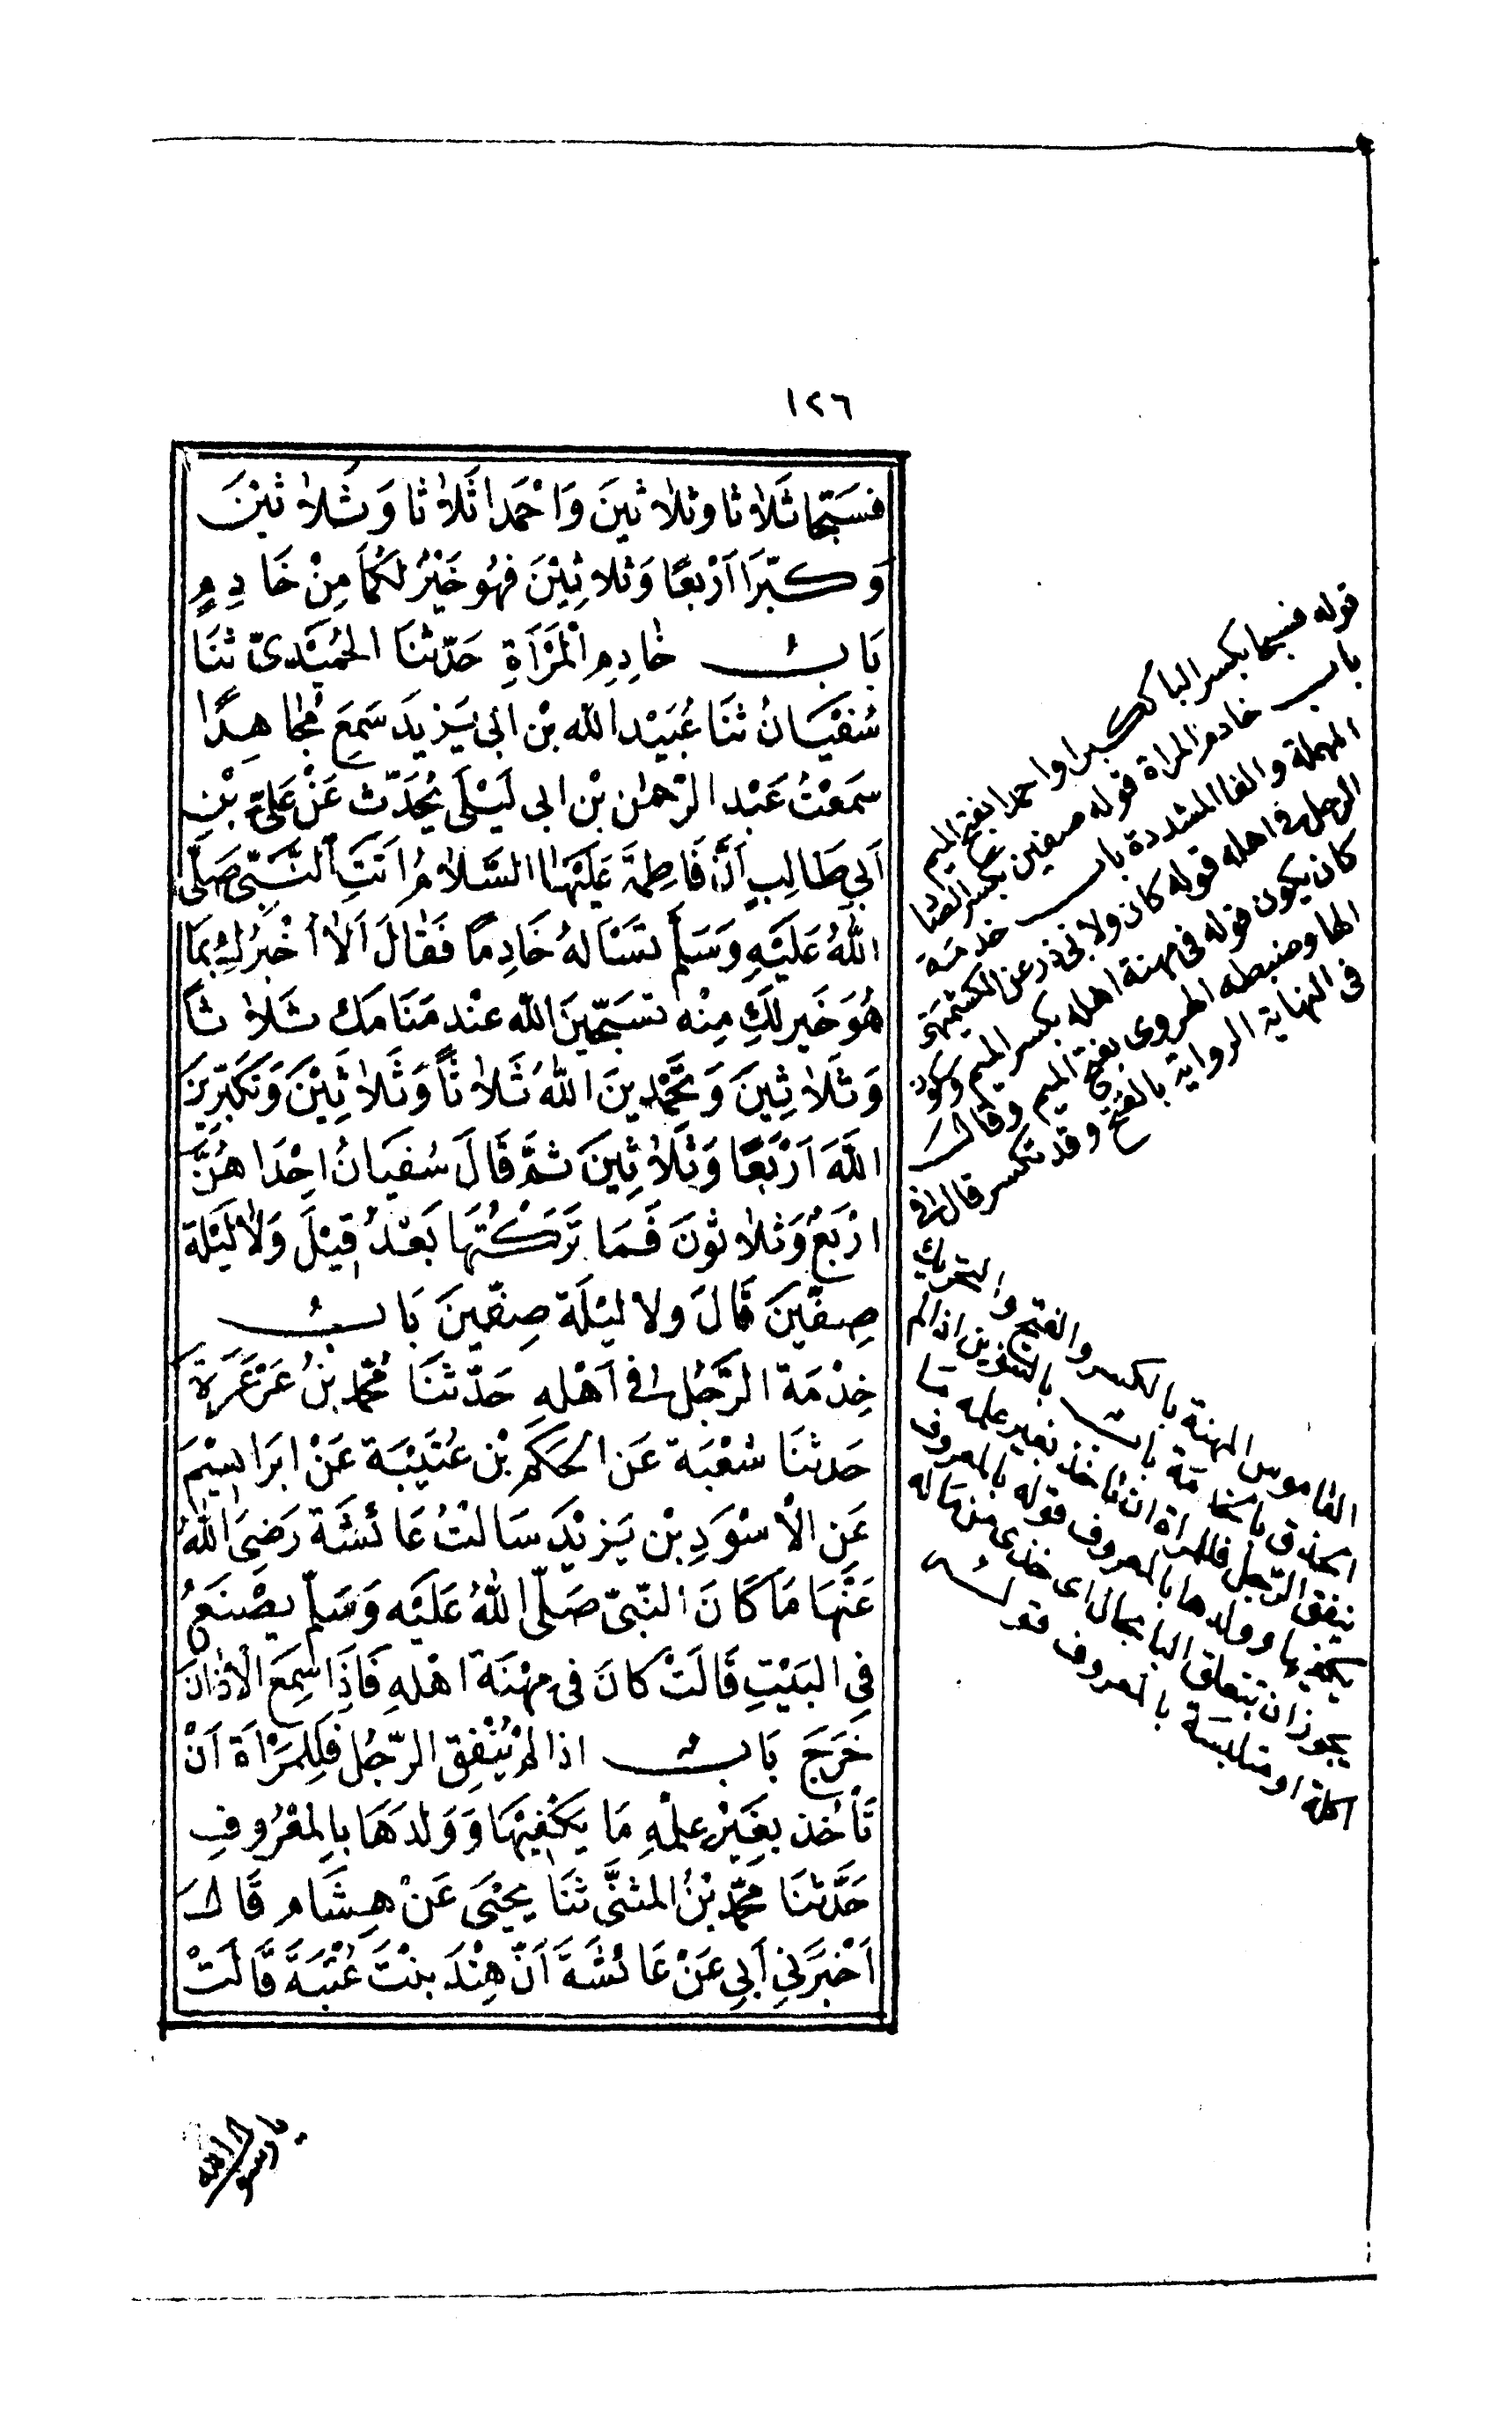 ١٢٦
فسَبِّحا ثَلاثا وثلاثينَ وَاحْمَدا ثَلاثا وَثَلاثينَ
وَكبّرَا اَرْبعًا وَثلاثِيْنَ فهُو خَيْرٌ لكُمَا مِنْ خَادِمٍ
بَابُ خادِمِ الْمَرْأَةِ حَدّثنَا الحُمَيْدىّ ثنَا
سُفْيَانُ ثنَا عُبَيْد الله بْن ابى يَزيدَ سَمِعَ مُجاهِدًا
سمَعْتُ عَبْد الرّحمٰن بْن ابى لَيْلَى يُحَدّث عَنْ عَلىّ بْنِ
اَبي طَالِبٍ اَنَّ فَاطِمَةَ عَلَيْهَا السَّلامُ اَتَتِ النَّبِّى صَلَّى
اللهُ عَلَيْهِ وَسَلَّم تَسْألهُ خَادِمًا فَقالَ اَلا اُخْبرُكِ بمَا
هُوَ خَير لكِ مِنْه تسَبّحِينَ الله عنْد مَنَامكِ ثَلاثاً
وَثَلاثِينَ وَتحْمَدِينَ اللهَ ثَلاثاً وَثَلاثِيْنَ وَتكَبّرِينَ
اللّهَ اَرْبَعًا وَثَلاثِينَ ثمَّ قَالَ سُفيَانُ اِحْدَاهُنَّ
ارْبَعٌ وَثلاثونَ فَمَا تَرَكْتُهَا بَعْدُ قِيْلَ وَلا لَيْلَة
صِفّينَ قَالَ ولا ليْلَة صِفّينَ بَابُ
خِدْمَة الرَّجُل فى اَهْلهِ حَدّثنَا مُحّمد بنُ عَرْعَرَةَ
حَدثنَا شُعْبَة عَن الحَكَم بْن عُتَيْبَة عَنْ ابرَاهِيْمَ
عَن الْاسْوَدِ بْن يَزيْدَ سَالتُ عَائشَة رَضىَ اللهُ
عَنْهَا مَا كَانَ النّبىّ صَلّى اللهُ عَلَيْه وَسَلّم يصْنَعُ
فِي البَيْتِ قَالَتْ كانَ فى مِهْنَة اهْلهِ فَاِذَا سَمِعَ الْاَذانَ
خَرَجَ بَابٌ اذا لمْ يُنْفِق الرّجُل فَلِلمَرْأة اَنْ
تَأخُذ بغَيْر علْمهِ مَا يَكْفِيْهَا وَوَلدهَا بالمعْرُوفِ
حَدَّثنَا مُحمّد بْنُ المثنَّى ثنَا يحْيَى عَنْ هِشَام قَالَ
اَخْبَرَنِي أَبي عَنْ عَائشَةَ اَنّ هِنْدَ بنْتَ عُتْبَةَ قَالَتْ
قوله فسبحا بكسر البا ككبرا واحمدا بفتح الميم
باب خادم المراة قوله صفين بكسر الصاد
المهملة والفا المشددة باب خدمة
الرجل فى اهله قوله كان ولابى ذر عن الكشميهنى
كان يكون قوله فى مهنة اهله بكسر الميم وسكون
الها وضبطه الهروى بفتح الميم وقال
فى النهاية الرواية بالفتح وقد تكسر قال فى
القاموس المهنة بالكسر والفتح والتحريك
الحذق بالخدمة باب بالتنوين اذا لم
ينفق الرجل فللمراة ان تاخذ بغير علمه ما
يكفيها وولدها بالمعروف قوله بالمعروف
يجوز ان تتعلق البا بحال اى خذى من ماله
اكلة او متلبسة بالمعروف قوله
يا رسول الله